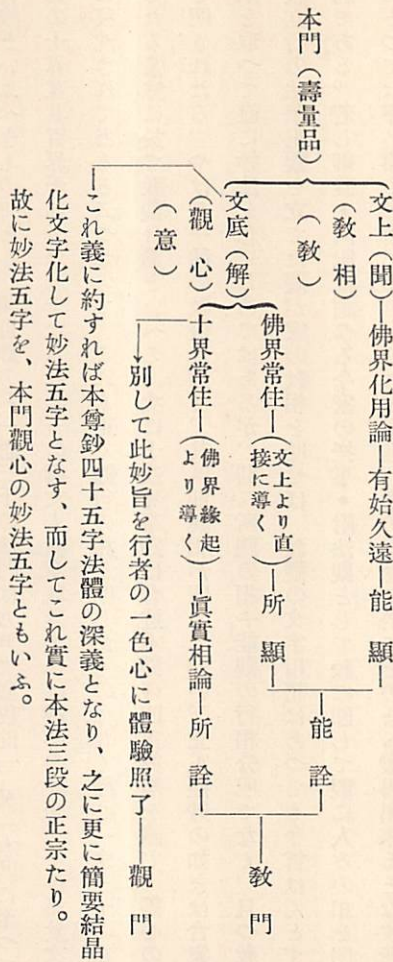 本門(壽量品)
文上(聞)―佛界化用論―有始久遠―能顯
(敎相)
(敎)
佛界常住―(文上より直接に導く)―所顯
能詮
文底(解)
(觀心)
(意)
十界常住―(佛界緣起より導く)―眞實相論―所詮
敎門
別して此妙旨を行者の一色心に體驗照了――觀門
これ義に約すれば本尊鈔四十五字法體の深義となり、之に更に簡要結晶
化文字化して妙法五字となす、而してこれ實に本法三段の正宗たり。
故に妙法五字を、本門觀心の妙法五字ともいふ。